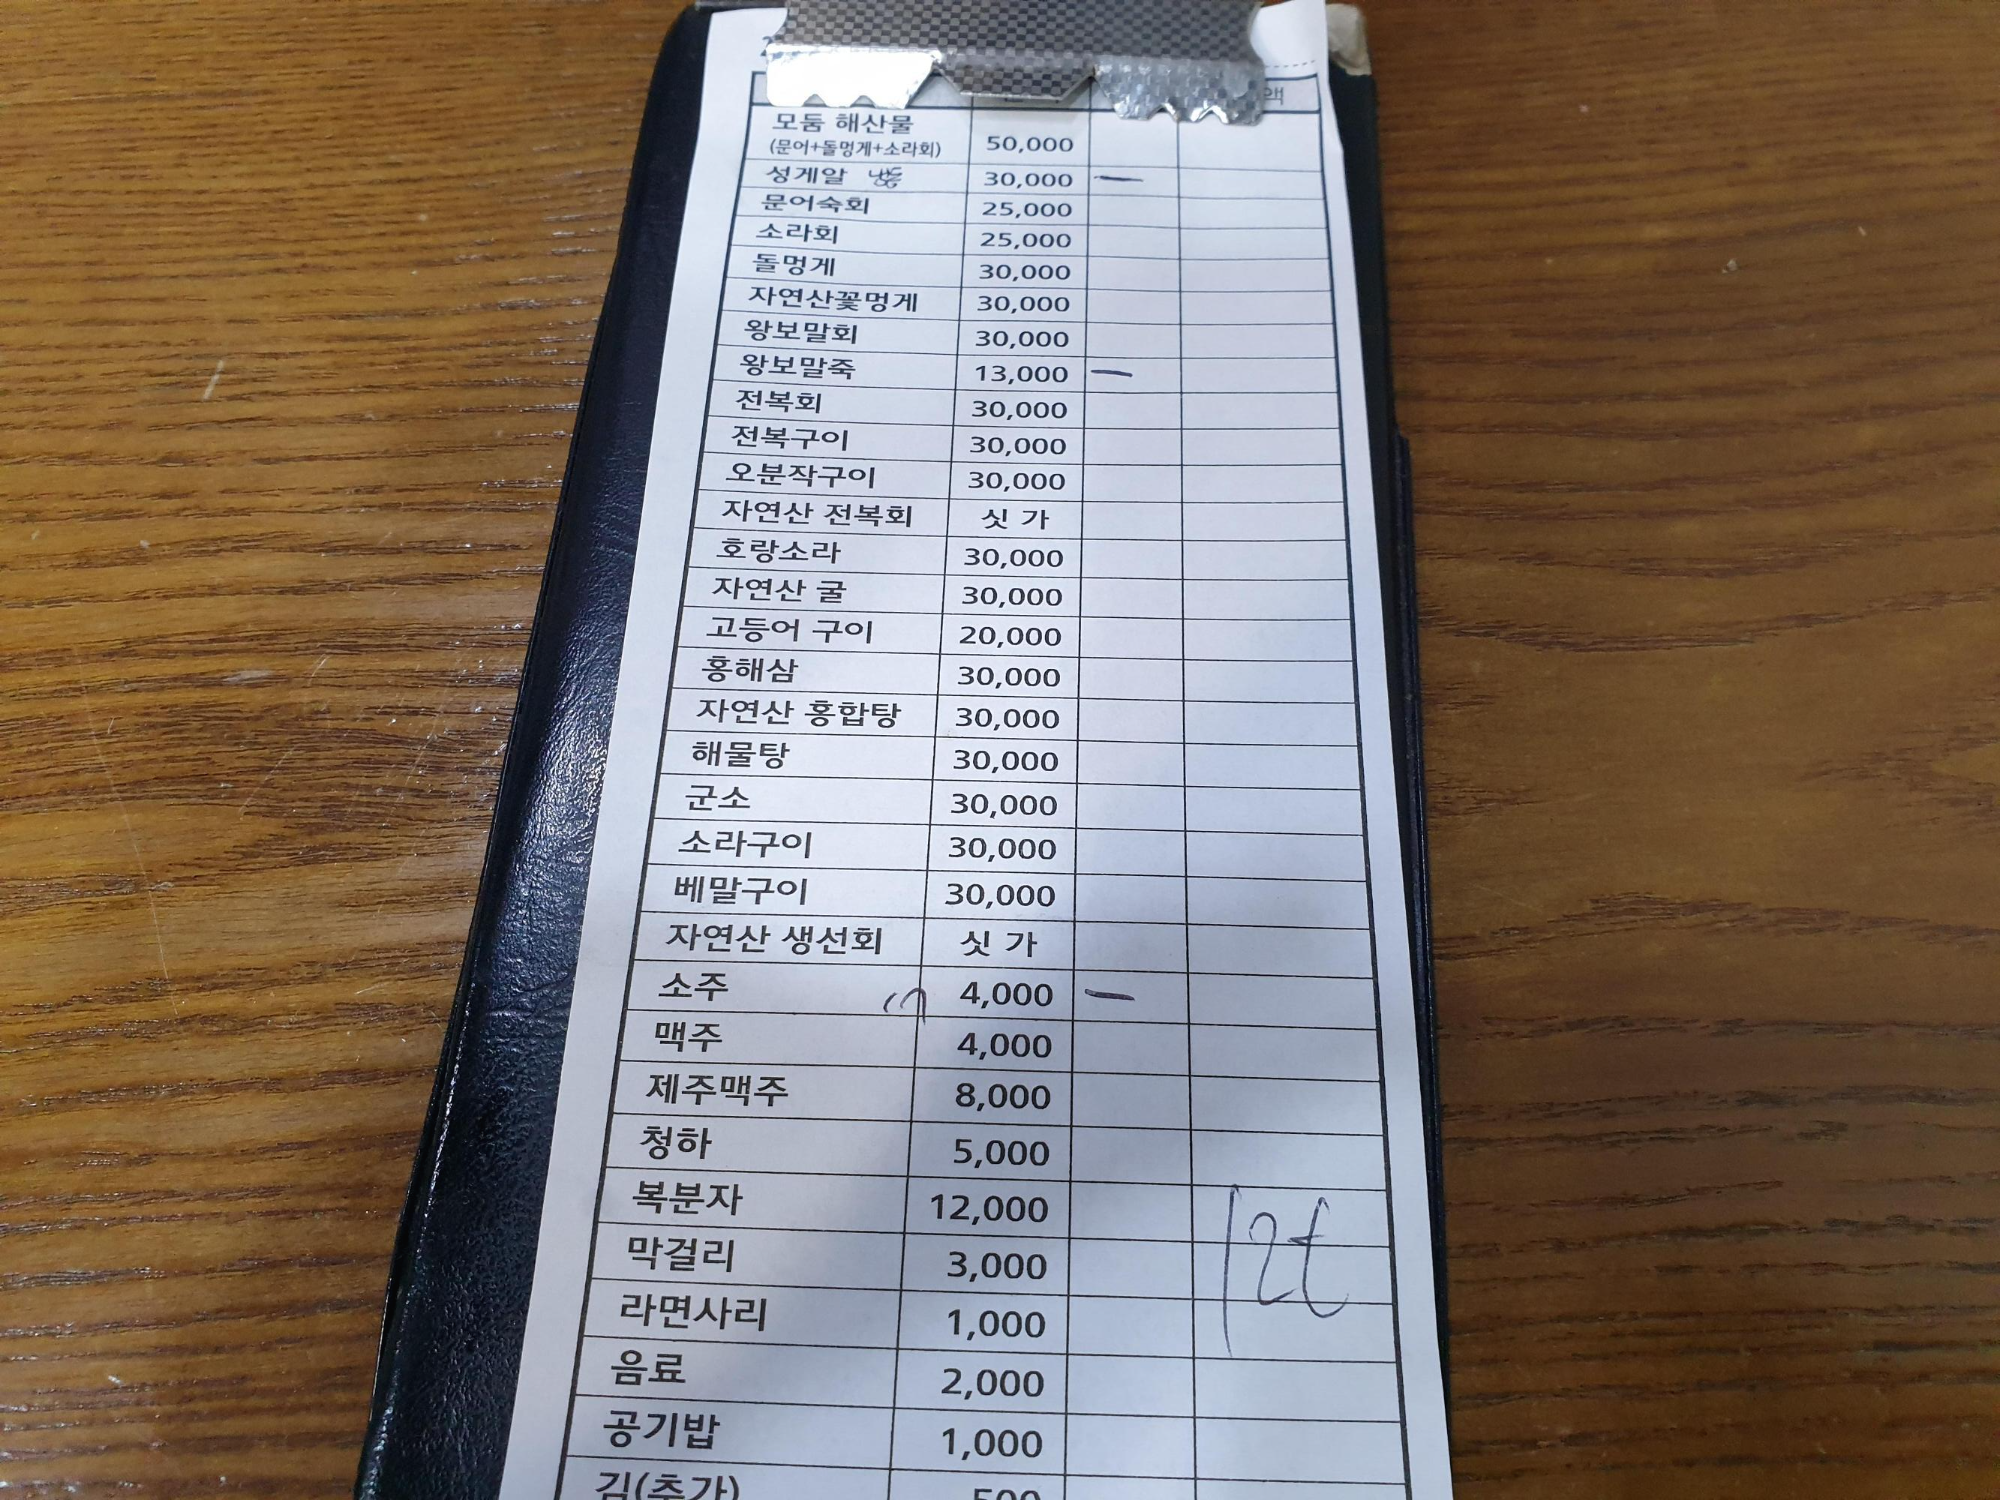 액
모둠 해산물
(문어+돌멍게+소라회) 50,000
성게알 30,000 —
문어숙회 25,000
소라회 25,000
돌멍게 30,000
자연산꽃멍게 30,000
왕보말회 30,000
왕보말죽 13,000 —
전복회 30,000
전복구이 30,000
오분작구이 30,000
자연산 전복회 싯 가
호랑소라 30,000
자연산 굴 30,000
고등어 구이 20,000
홍해삼 30,000
자연산 홍합탕 30,000
해물탕 30,000
군소 30,000
소라구이 30,000
베말구이 30,000
자연산 생선회 싯 가
소주 4,000 —
맥주 4,000
제주맥주 8,000
청하 5,000
복분자 12,000
막걸리 3,000
라면사리 1,000
음료 2,000
공기밥 1,000
김(추가) 500